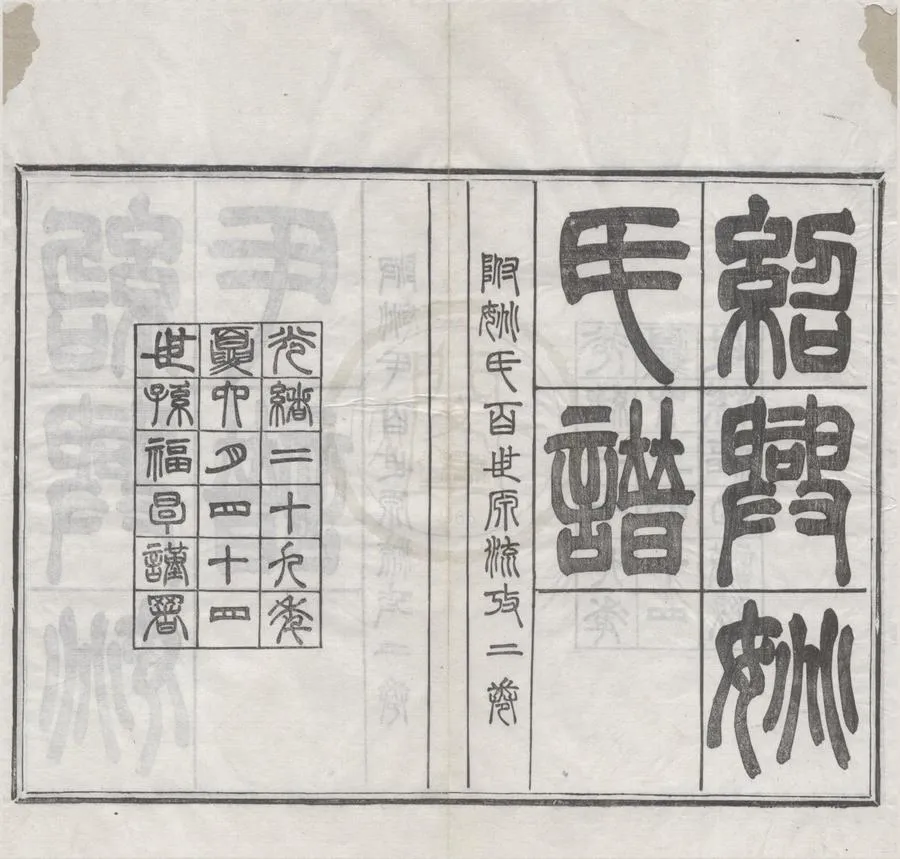 紹興姚
氏譜
附姚氏百世原流攷二卷
光緒二十九年
夏六月四十四
世孫福謹署